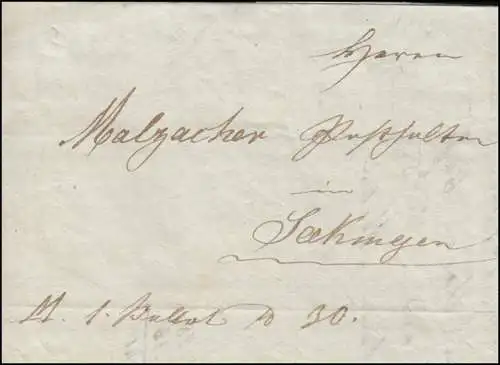 Herrn
Malzacher Posthalter
in
Säkingen
M. 1. Ballot 30.